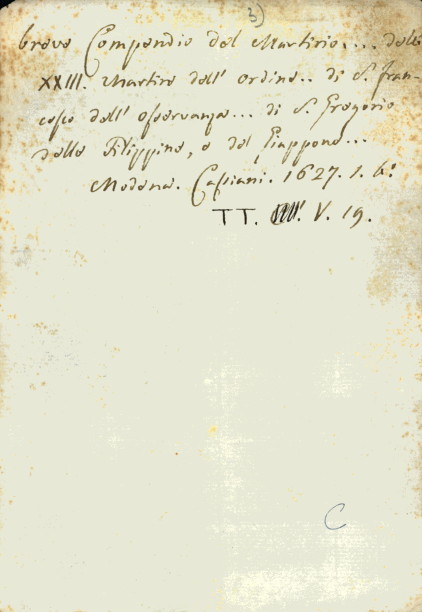 3)
breve Compendio del Martirio.... delli
XXIII. Martiri dell' Ordine.. di S. Fran-
cesco dell' osservanza... di S. Gregorio
delle Filippine, e del Giappone...
Modena. Cassiani. 1627. 1. 6:
TT. V. 19.
C